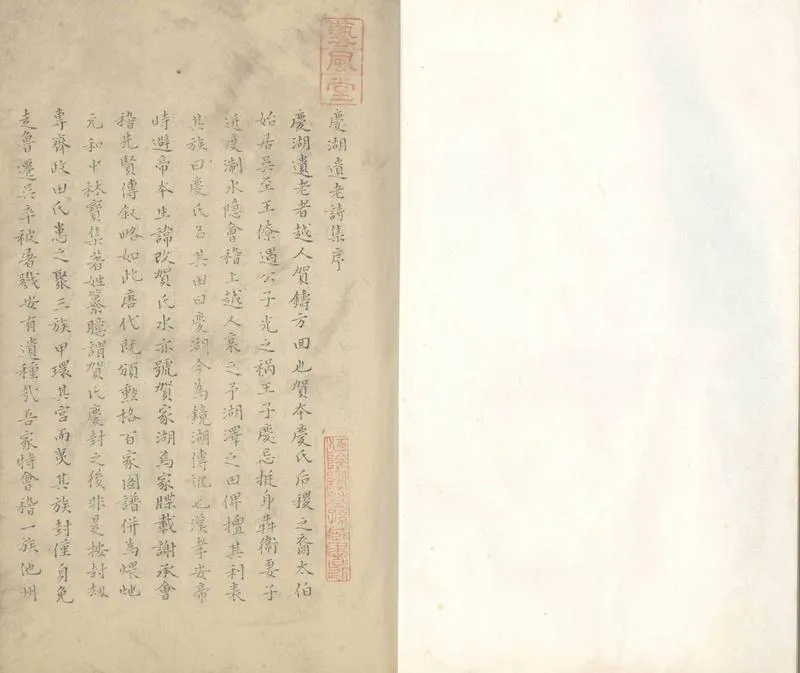 藝風堂
慶湖遺老詩集序
慶湖遺老者越人賀鑄方回也賀本慶氏后稷之裔太伯
始居吳至王僚遇公子光之禍王子慶忌挺身犇衞妻子
迸度淛水隐會稽上越人哀之予湖澤之田俾擅其利表
其族曰慶氏名其田曰慶湖今為鏡湖傳訛也漢孝安帝
時避帝本生諱改賀氏水亦號賀家湖焉家牒載謝承會
稽先賢傳叙略如此唐代既頒勲格百家圖譜併為煨灺
元和中林寳集著姓纂臆謂賀氏慶封之後非是按封刼
專齊政田氏患之聚三族甲環其宮而焚其族封僅自免
走魯遷吳卒被屠戮安有遺種㢤吾家特會稽一族他州